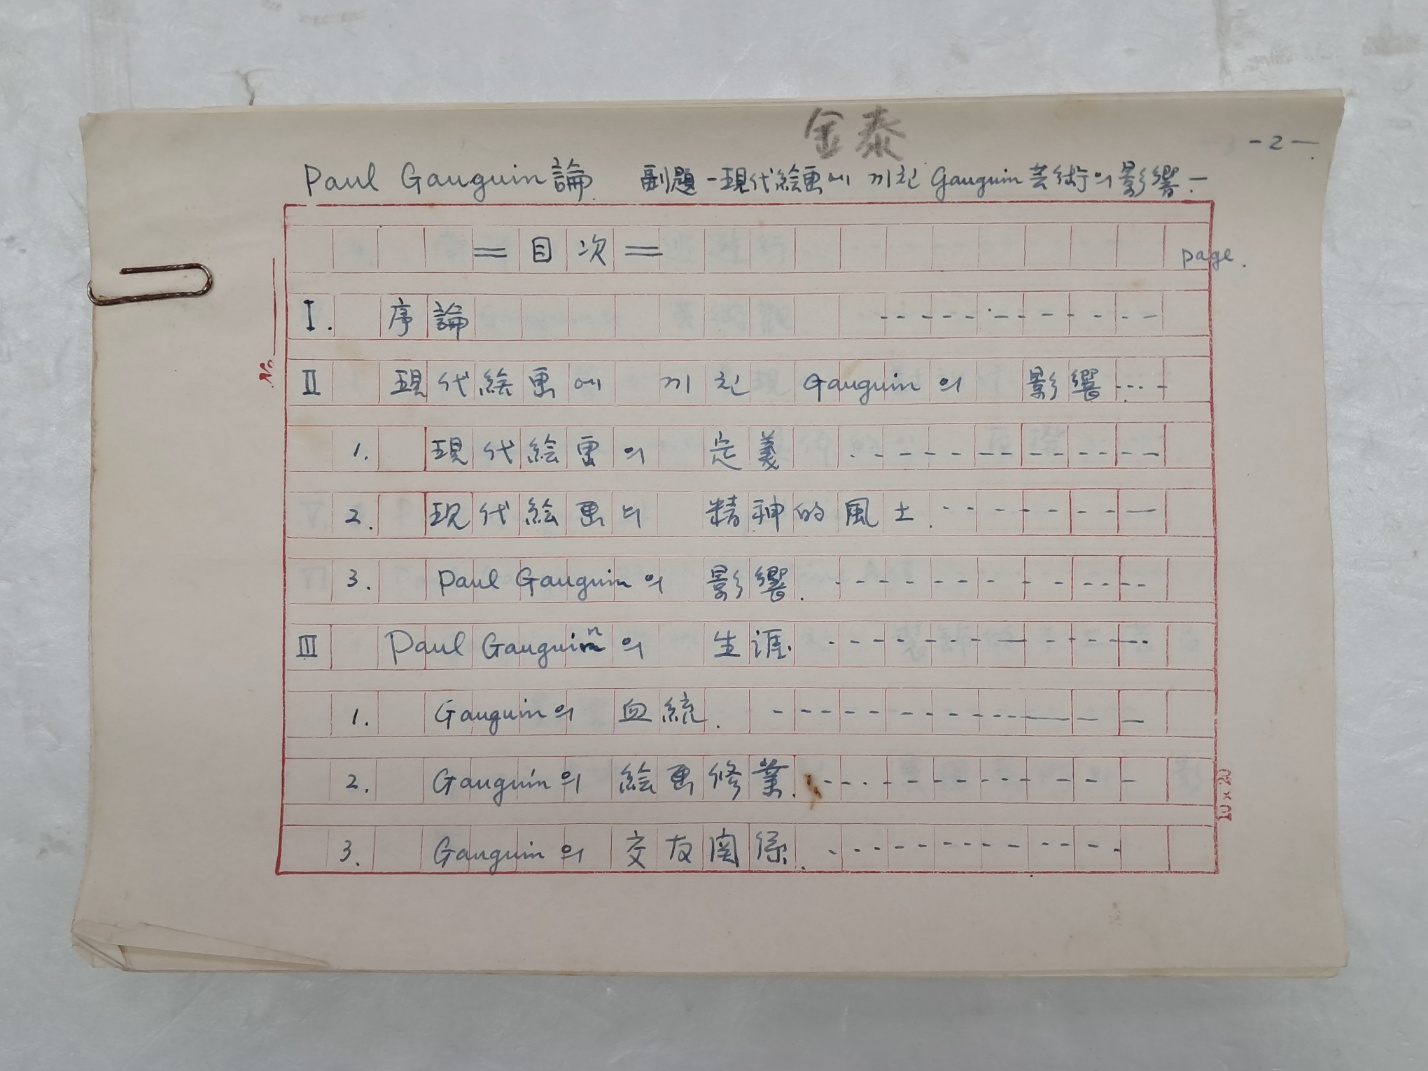 金泰
- 2 -
Paul Gauguin 論. 副題 - 現代絵画에 끼친 Gauguin 芸術의 影響. -
= 目次 =
page.
I. 序論 - - - - - - - - - - - -
II 現代絵画에 끼친 Gauguin의 影響 ... -
1. 現代絵画의 定義 - - - - - - - - - - - -
2. 現代絵画의 精神的風土. - - - - - - - -
3. Paul Gauguin의 影響. - - - - - - - - - - - -
III Paul Gauguin의 生涯. - - - - - - - - - - - -
1. Gauguin의 血統. - - - - - - - - - - - -
2. Gauguin의 絵画修業. - - - - - - - - - - - -
3. Gauguin의 交友関係. - - - - - - - - - - - -
No.
10×20